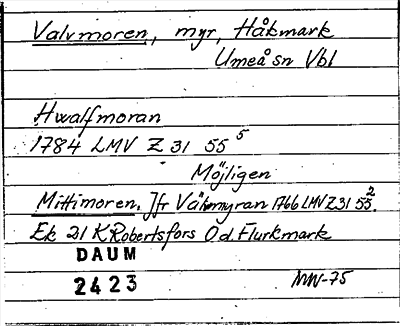 Valvmoren, myr, Håkmark
Umeå sn Vbl
Hwalfmoran
1784 LMV Z 31 55⁵
Möjligen
Mittimoren. Jfr Västmyran 1766 LMV Z 31 55².
Ek 21 K Robertsfors O d. Flurkmark
DAUM
2423
MW-75